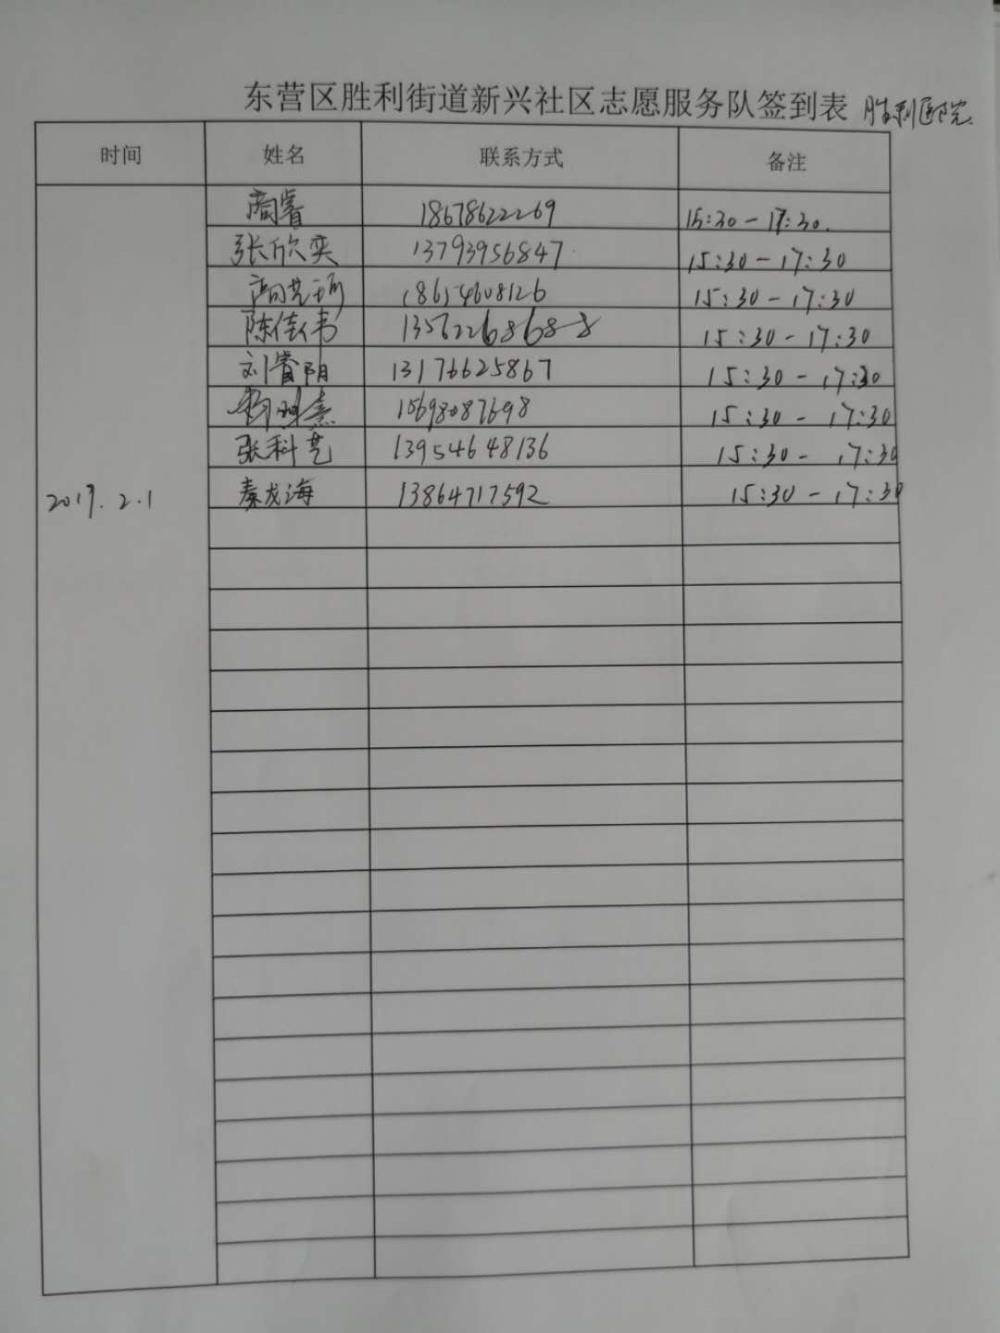 东营区胜利街道新兴社区志愿服务队签到表 胜利医院
时间 姓名 联系方式 备注
周睿 18678622269 15:30-17:30.
张欣奕 13793956847 15:30-17:30
18654608126 15:30-17:30
陈佳韦 13562268688 15:30-17:30
刘睿阳 13176625867 15:30-17:30
15698087698 15:30-17:30
张科艺 13954648136 15:30-17:30
2019.2.1 秦龙海 13864717592 15:30-17:30